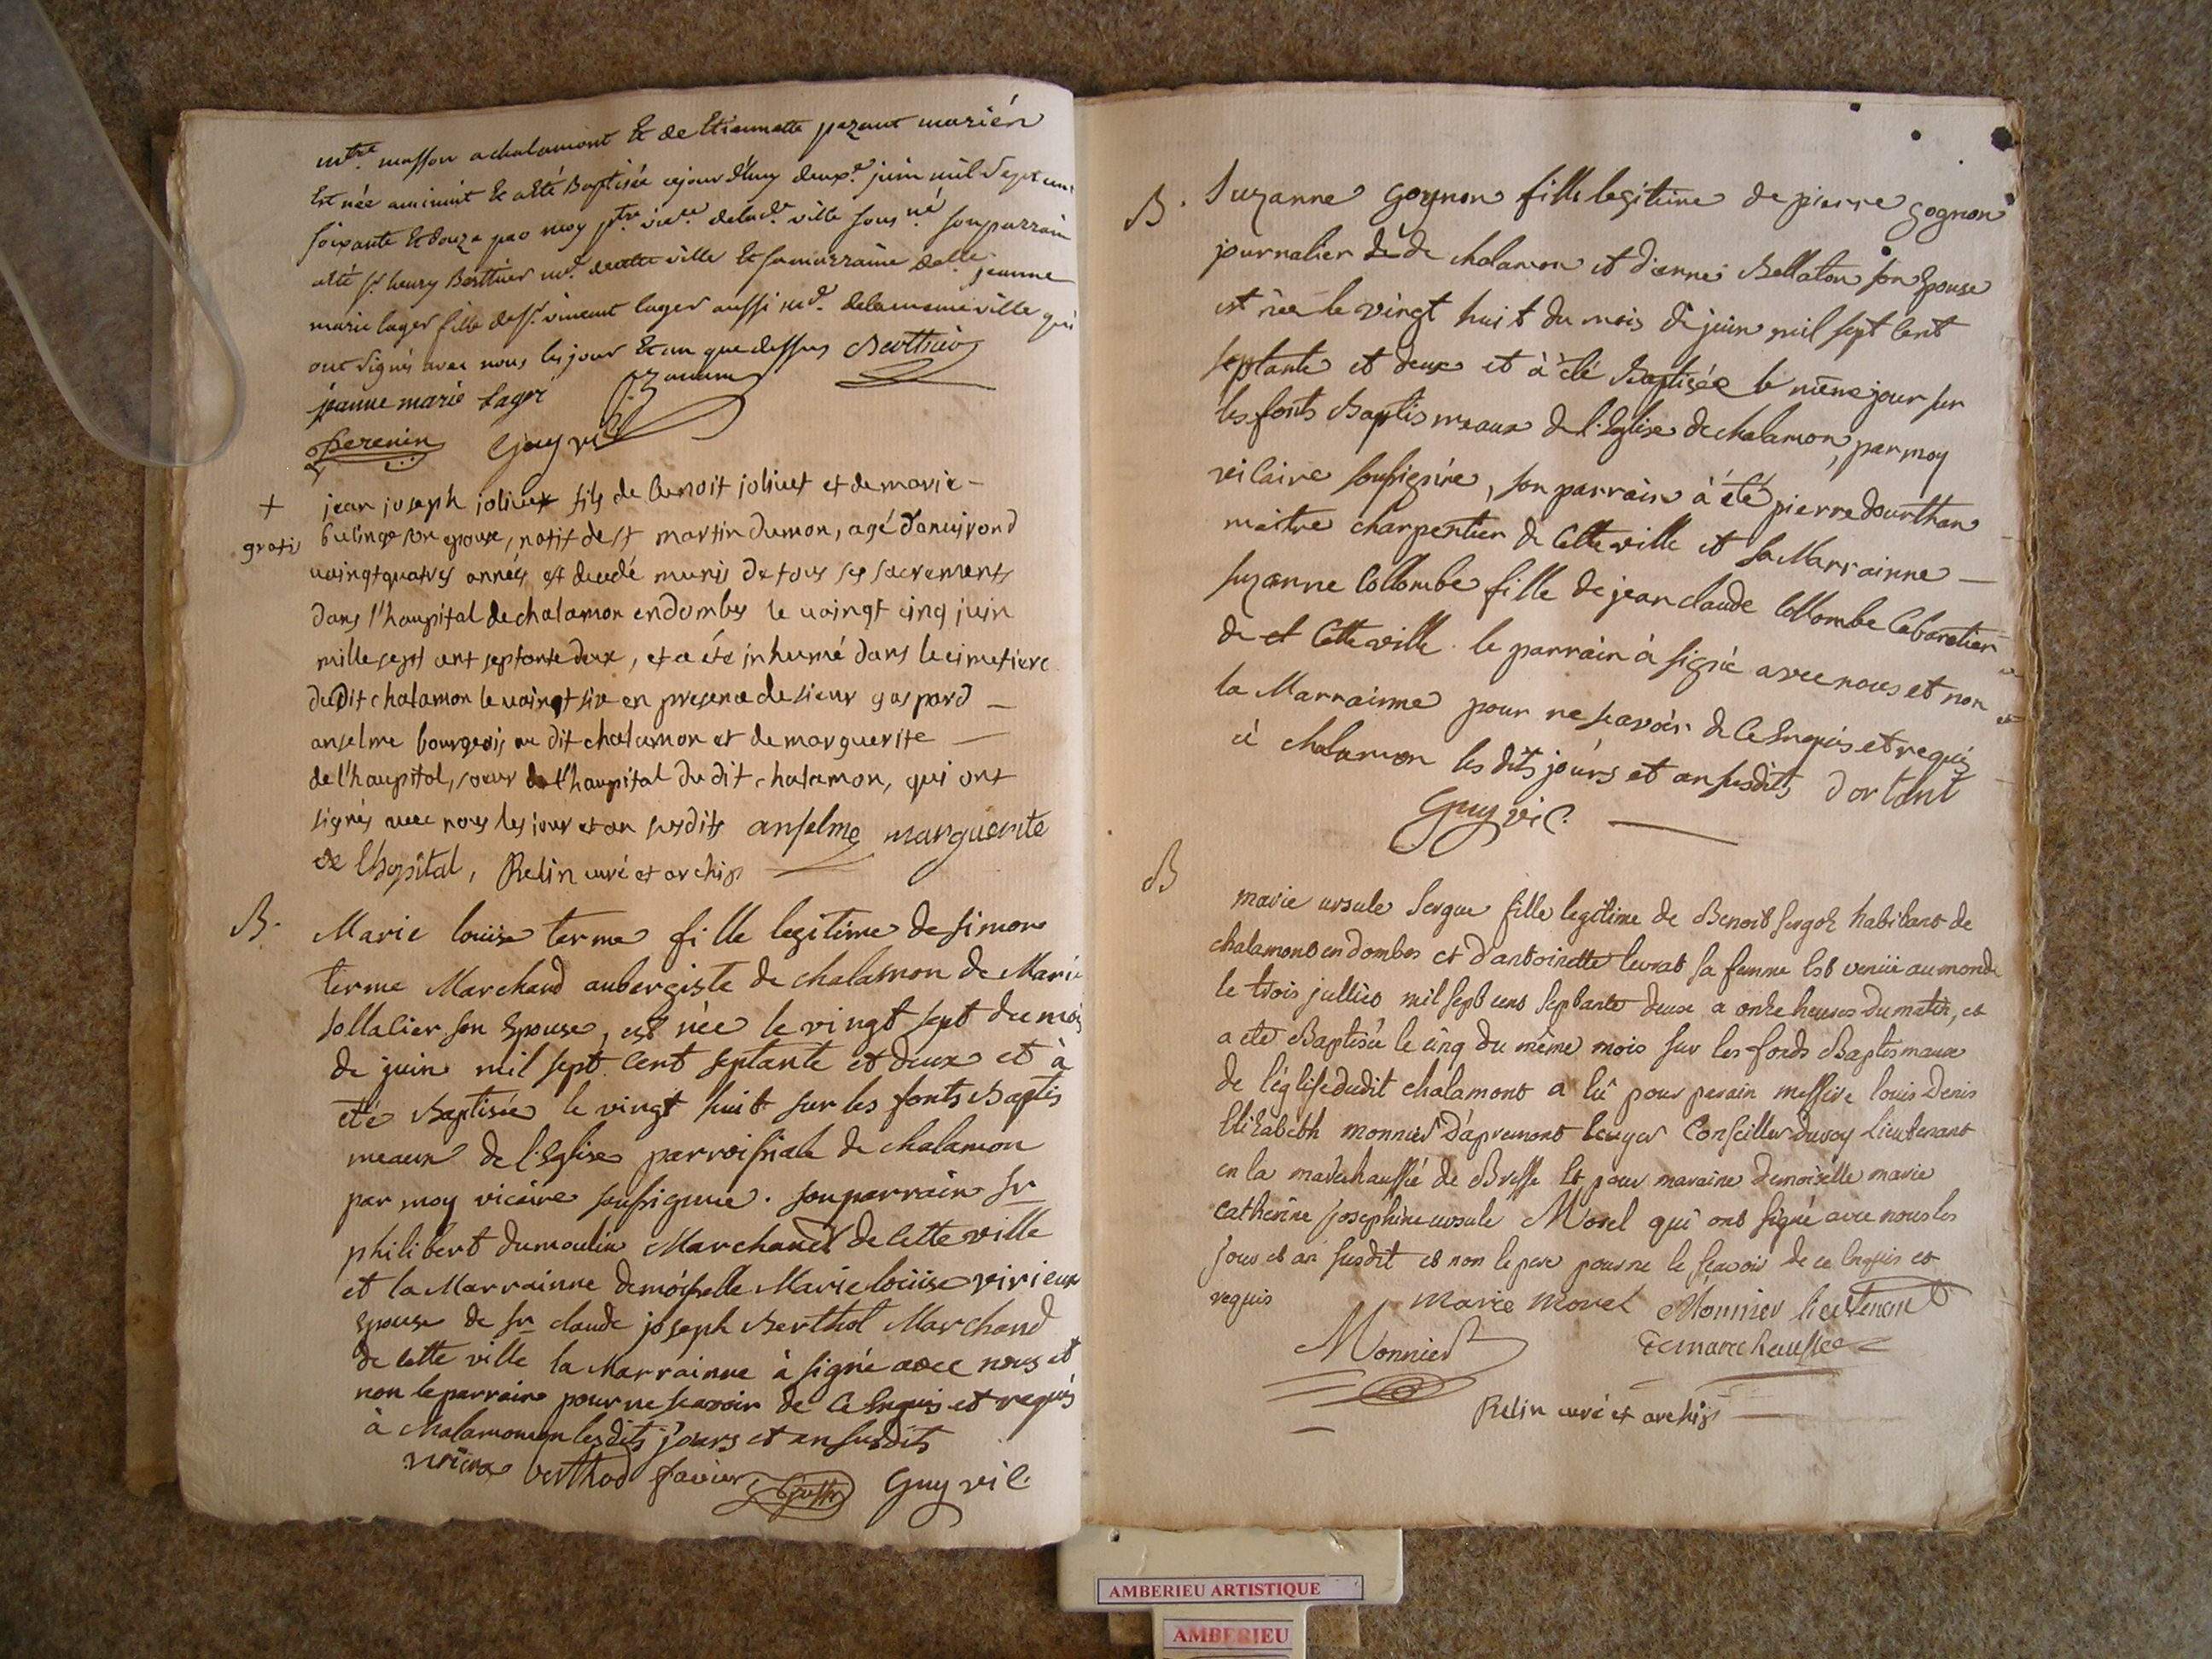 mtre. masson a chalamont Et de Etiennette pezant mariés
Est née a minuit Et a Eté Baptisée cejourd'huy deuxe. juin mil sept cent
soixante Et douze par moy ptre. vicre. de lade. ville sousné. son parrain
a été sr. henry Berthier md. de cette ville Et sa marraine delle. jeanne
marie lager fille de sr. vincent lager aussi md. de la meme ville qui
ont signés avec nous les jour Et an que dessus Berthier
jeanne marie Lager
perenin Guy vic.
+ jean joseph joliuet fils de benoit joliuet et de marie
gratis
son epouse, natif de st martin dumon, agé d'anuirond
uaingtquatres années est decedé munis de tous ses sacrements
dans l'haupital de chalamon en dombes le uaingt cinq juin
mille sept cent septante deux, et a été inhumé dans le cimetiere
du dit chalamon le uaingt six en presence de sieur gaspard
anselme bourgeois au dit chalamon et de marguerite
de l'haupital, soeur de l'haupital du dit chalamon, qui ont
signés avec nous les jour et an susdits anselme marguerite
de l'hopital, Relin curé et archip
B. Marie louise terme fille legitime de simon
terme Marchand aubergiste de chalamon de Marie
sollalier son Epouse, est née le vingt sept du mois
de juin mil sept cent septante et deux et à
été Baptisée le vingt huit sur les fonts Baptis
meaux de l'Eglise parroissiale de chalamon
par moy vicaire soussignée. son parrain sr
philibert dumoulin Marchand de cette ville
et la Marrainne demoiselle Marie loüise virieux
Epouse de sr claude joseph Berthot Marchand
de cette ville la Marrainne à signée avec nous et
non le parrain pour ne scavoir de ce Enquis et requis
à chalamon les dits jours et an susdits
berthod favier Guy vic.
B. Suzanne gognon fille legitime de pierre gognon
journalier de de chalamon et d'anne Bellaton son Epouse
est née le vingt huit du mois de juin mil sept cent
septante et deux et à été Baptisée le même jour sur
les fonts Baptismeaux de l'Eglise de chalamon, par moy
vicaire soussignée, son parrain à été pierre dourthan
maitre charpentier de cette ville et sa Marrainne
suzanne Collombe fille de jean claude Collombe Cabaretier
de et cette ville. le parrain à signé avec nous et non
la Marrainne pour ne scavoir de ce Enquis et requis
à chalamon les dits jours et an susdits dortant
Guy vic.
B
marie ursule sergue fille legitime de Benoit sergoz habitant de
chalamont en dombes et d'antoinette levrat sa femme Est venüe au monde
le trois juillet mil sept cent septante deux a onze heures du matin, et
a eté Baptisée le cinq du même mois sur les fonds Baptismaux
de l'église dudit chalamont a eû pour parain messire louis denis
Elizabeth monnier d'apremont Ecuyer Conseiller du roy lieutenant
en la marechaussée de Bresse Et pour maraine demoiselle marie
catherine josephine ursule Morel qui ont signé avec nous les
jour et an susdit et non le pere pour ne le scavoir de ce Enquis et
requis marie morel Monnier lieutenant
Monnier de marechaussee
Relin curé et archip
AMBERIEU ARTISTIQUE
AMBERIEU